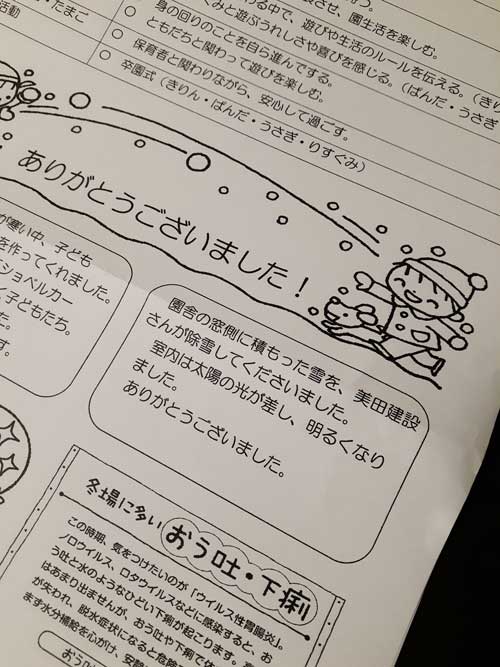 活動
させ、園生活を楽しむ。
わる中で、遊びや生活のルールを伝える。(きり
くみと遊ぶうれしさや喜びを感じる。(ぱんだ・うさぎ
○ 身の回りのことを自ら進んでする。
○ ともだちと関わって遊びを楽しむ。
○ 保育者と関わりながら、安心して過ごす。
○ 卒園式(きりん・ぱんだ・うさぎ・りすぐみ)
ありがとうございました!
が寒い中、子ども
を作ってくれました。
ショベルカー
く子どもたち。
た。
す。
園舎の窓側に積もった雪を、美田建設
さんが除雪してくださいました。
室内は太陽の光が差し、明るくなり
ました。
ありがとうございました。
冬場に多い おう吐・下痢
この時期、気をつけたいのが「ウイルス性胃腸炎」。
ノロウイルス、ロタウイルスなどに感染すると、お
う吐と水のようなひどい下痢が起こります。
はあまり出ませんが、おう吐や下痢で体
が失われ、脱水症状になると危険
ます水分補給を心がけ、安静
おう吐